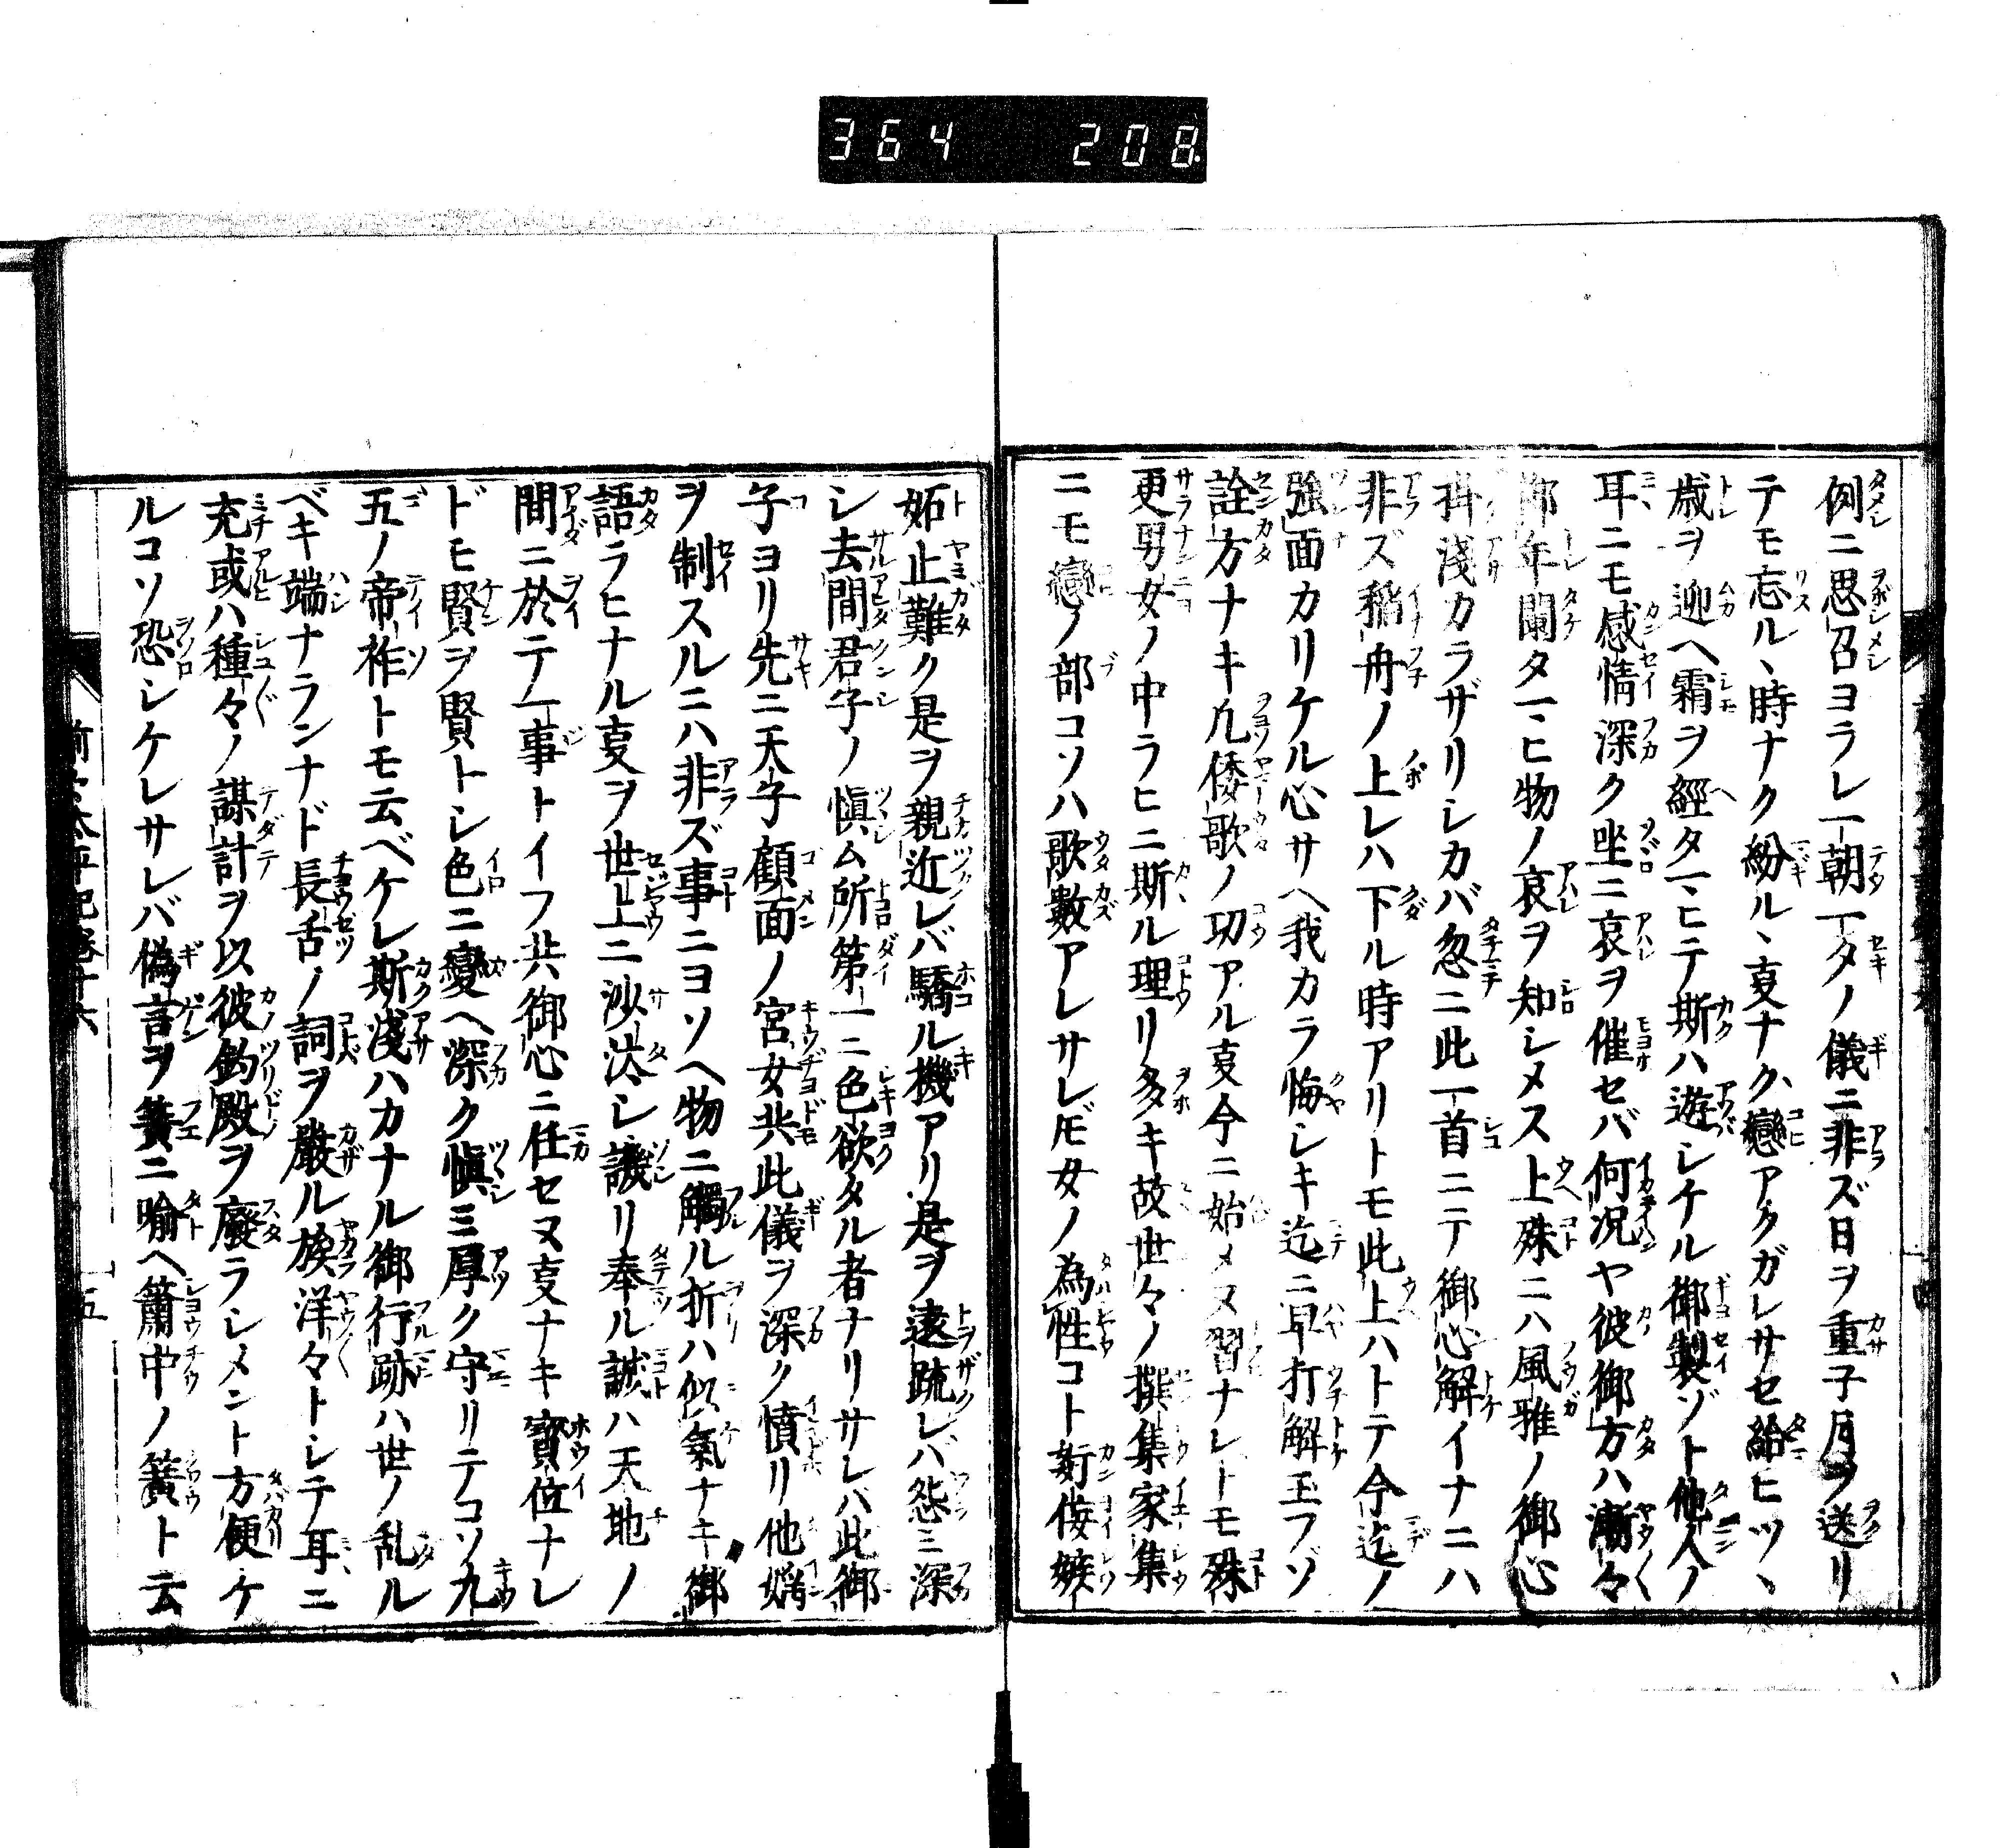 364 208
例ニ思召ヨラレ一朝一夕ノ儀ニ非ズ日ヲ重子月ヲ送リ
テモ忘ルヽ時ナク紛ルヽ叓ナク戀アクガレサセ給ヒツヽ
歳ヲ迎ヘ霜ヲ經タマヒテ斯ハ遊シケル御製ゾト他人ノ
耳ニモ感情深ク坐ニ哀ヲ催セバ何况ヤ彼御方ハ漸々
御年闌タマヒ物ノ哀ヲ知シメス上殊ニハ風雅ノ御心
掛淺カラザリシカバ忽ニ此一首ニテ御心解イナニハ
非ズ稲舟ノ上レハ下ル時アリトモ此上ハトテ今迄ノ
強面カリケル心サヘ我カラ悔シキ迄ニ早打解玉フゾ
詮方ナキ凡倭歌ノ功アル叓今ニ始メヌ習ナレトモ殊
更男女ノ中ラヒニ斯ル理リ多キ故世々ノ撰集家集
ニモ戀ノ部コソハ歌數アレサレ𪜈女ノ為性コト姧侫嫉
妬止難ク是ヲ親近レバ驕ル機アリ是ヲ遠疏レバ怨ミ深
シ去間君子ノ愼ム所第一ニ色欲タル者ナリサレハ此御
子ヨリ先ニ天子顧面ノ宮女共此儀ヲ深ク憤リ他婚
ヲ制スルニハ非ズ事ニヨソヘ物ニ觸ル折ハ似氣ナキ御
語ラヒナル叓ヲ世上ニ沙汰シ譏リ奉ル誠ハ天地ノ
間ニ於テ一事トイフ共御心ニ任セヌ叓ナキ寳位ナレ
ドモ賢ヲ賢トシ色ニ變ヘ深ク愼ミ厚ク守リテコソ九
五ノ帝祚トモ云ベケレ斯淺ハカナル御行跡ハ世ノ乱ル
ベキ端ナランナド長舌ノ詞ヲ嚴ル族洋々トシテ耳ニ
充或ハ種々ノ謀計ヲ以彼釣殿ヲ廢ラシメント方便ケ
ルコソ恐シケレサレバ偽言ヲ簧ニ喩ヘ簫中ノ簧ト云
前太平記卷十六
十五